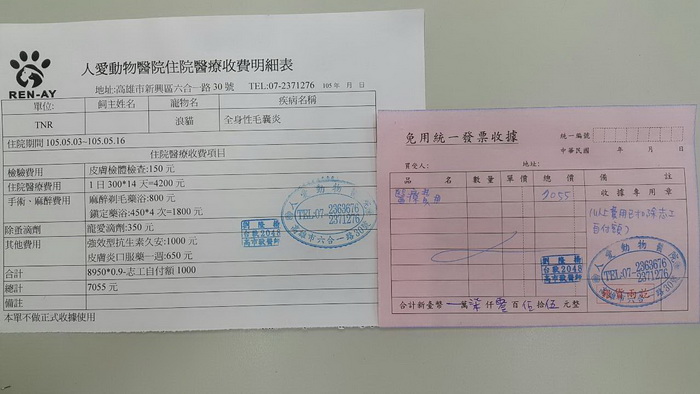 REN-AY
人愛動物醫院住院醫療收費明細表
地址:高雄市新興區六合一路30號 TEL:07-2371276 105年 月 日
單位: 飼主姓名 寵物名 疾病名稱
TNR 浪貓 全身性毛囊炎
住院期間 105.05.03~105.05.16
住院醫療收費項目
檢驗費用 皮膚檢體檢查:150元
住院醫療費用 1日300*14天=4200元
手術、麻醉費用 麻醉剃毛藥浴:800元
鎮定藥浴:450*4次=1800元
除蚤滴劑 寵愛滴劑:350元
其他費用 強效型抗生素久安:1000元
皮膚炎口服藥一週:650元
合計 8950*0.9-志工自付額1000
總計 7055元
備註
本單不做正式收據使用
台獸2048
高市獸醫師
人愛動物醫院
TEL:07-2363676
2371276
高雄市六合一路30號
免用統一發票收據
統一編號
中華民國 年 月 日
買受人: 地址:
品名 數量 單價 總價 備註
醫療費用 7055 收據專用章
(以上費用已扣除志工
自付額)
台獸2048
高市獸醫師
人愛動物醫院
TEL:07-2363676
2371276
合計新臺幣 萬 柒 仟 零 百 伍 拾 伍 元整